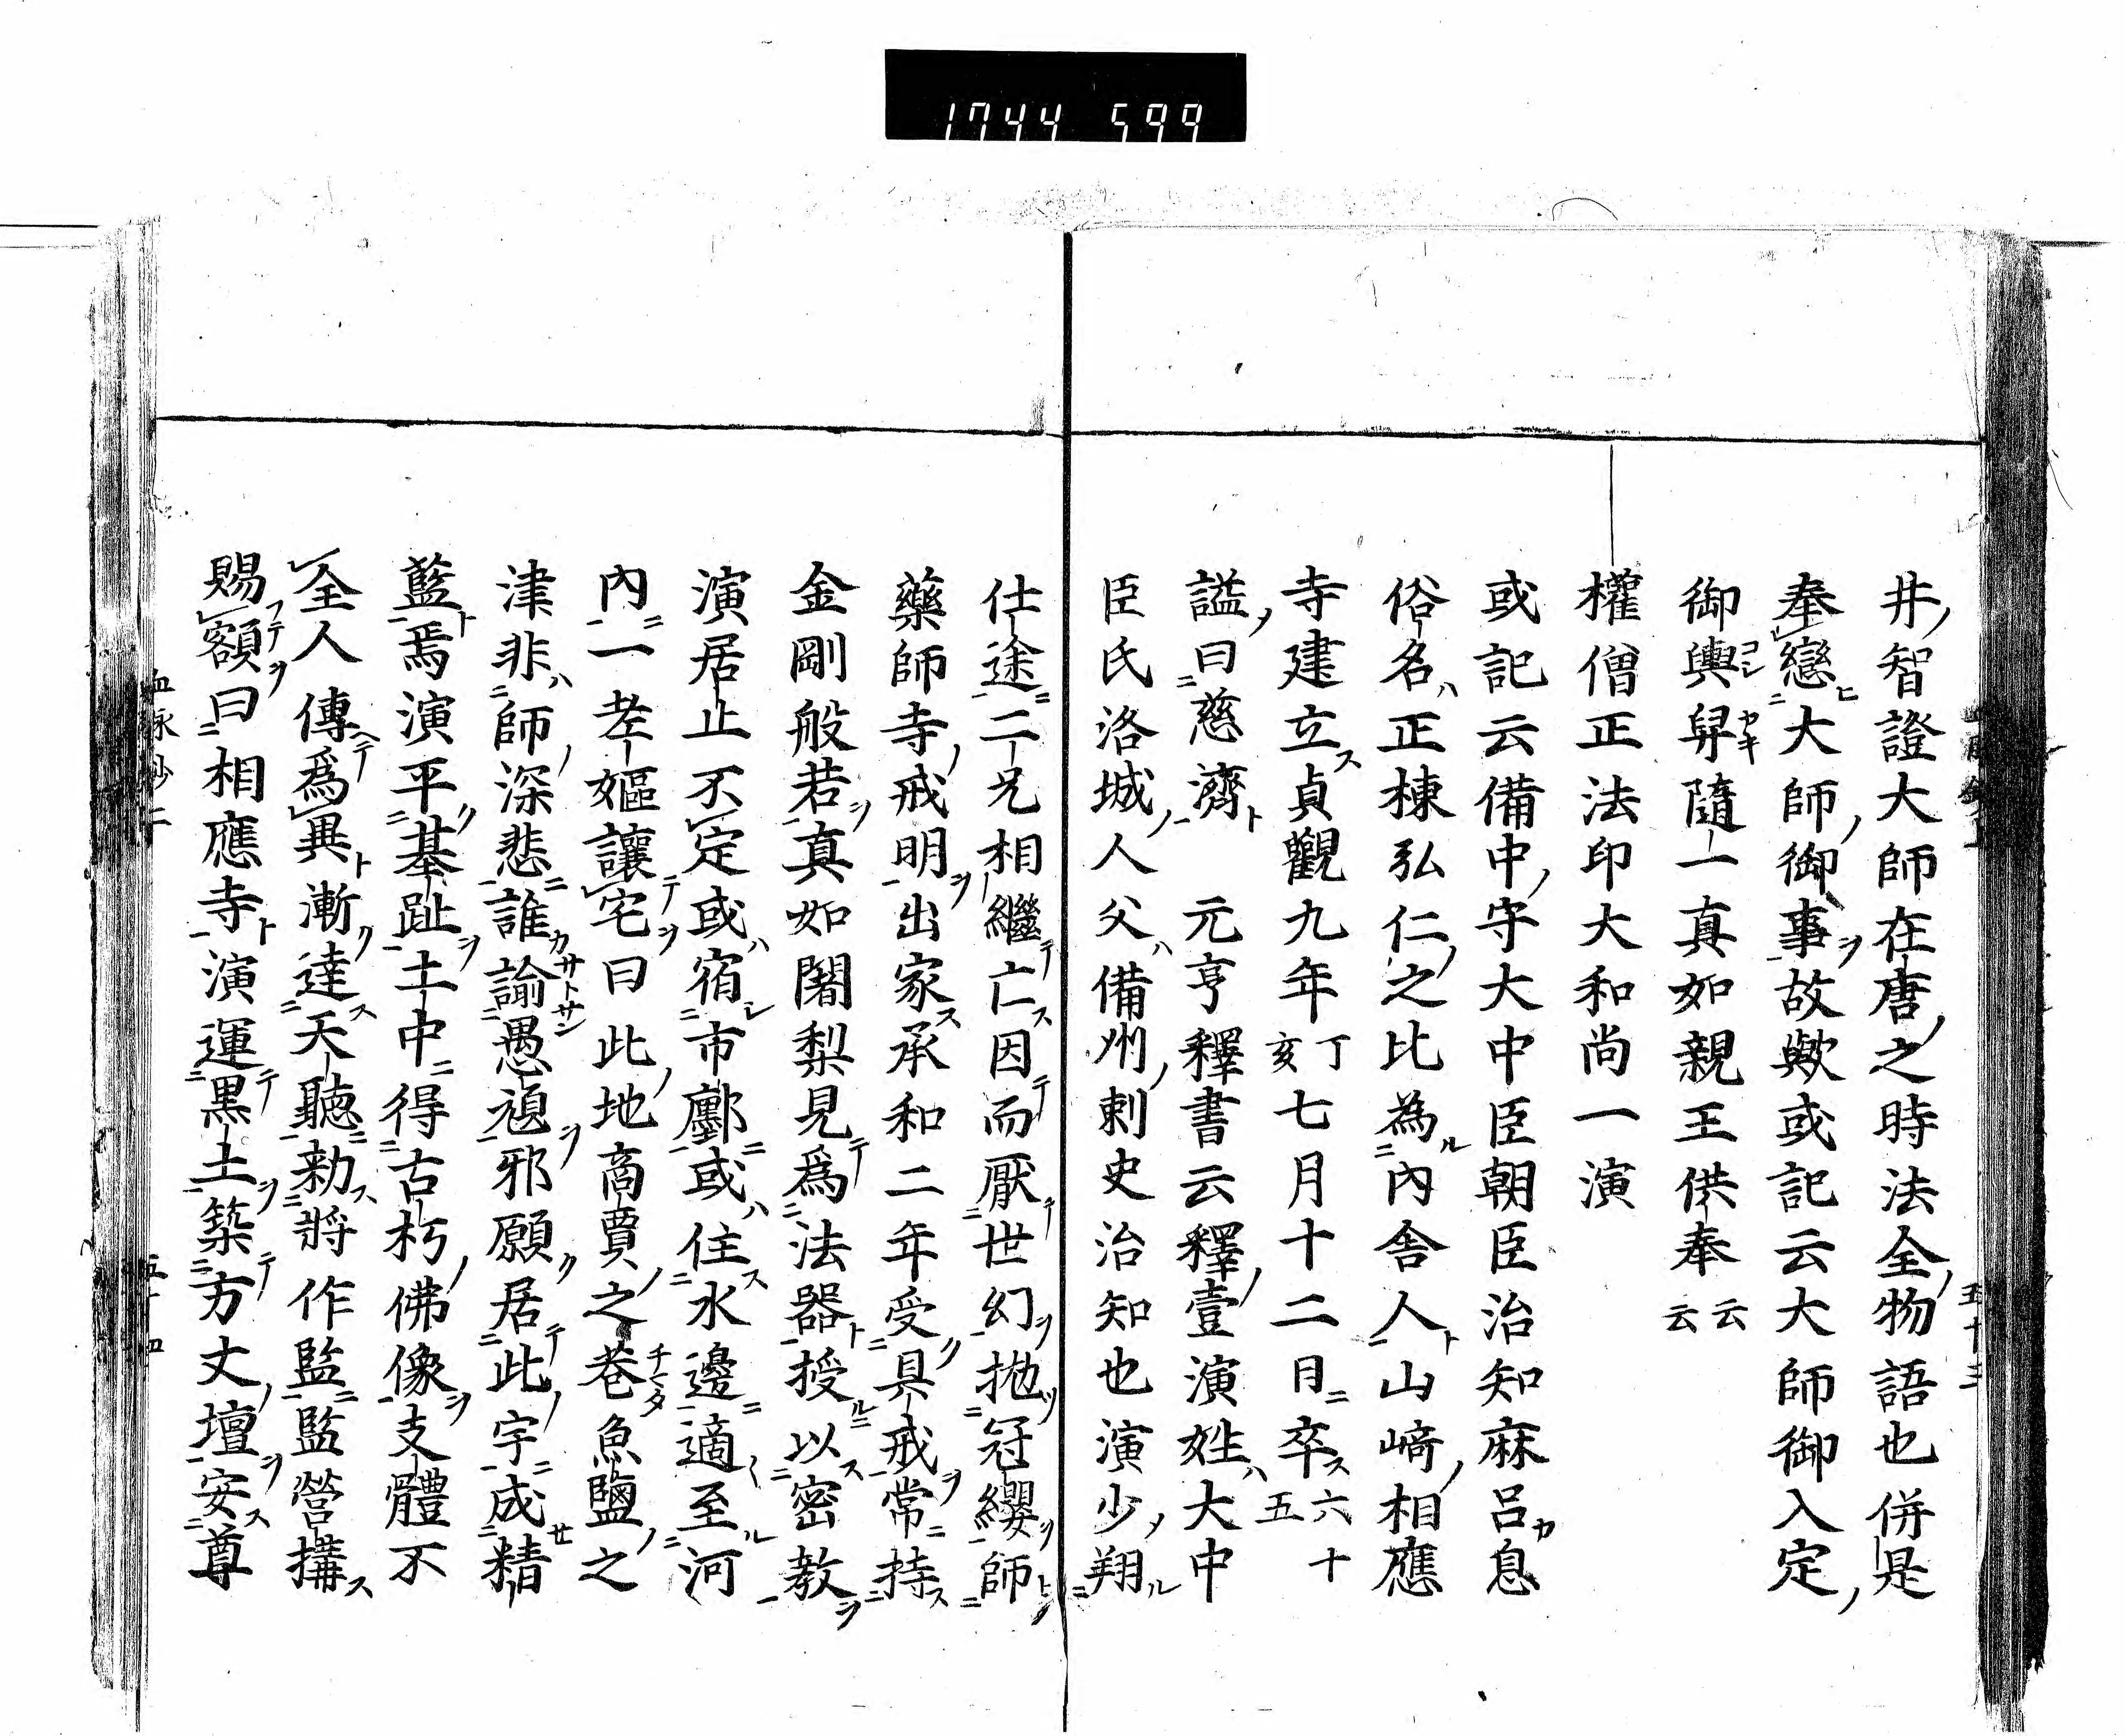 1744 599
井智證大師在唐之時法全物語也併是
奉戀大師御事故歟或記云大師御入定
御輿舁隨一真如親王供奉云云
權僧正法印大和尚一演
或記云備中守大中臣朝臣治知麻呂息
俗名正棟弘仁之比為內舍人山﨑相應
寺建立貞觀九年丁亥七月十二日卒六十五
謚曰慈濟 元亨釋書云釋壹演姓大中
臣氏洛城人父備州刺史治知也演少翔
仕途二兄相繼亡因而厭世幻拋冠纓師
藥師寺戒明出家承和二年受具戒常持
金剛般若真如闍梨見爲法器授以密教
演居止不定或宿市鄽或住水邊適至河
內一老嫗讓宅曰此地商賈之巷魚鹽之
津非師深悲誰諭愚頑邪願居此宇成精
藍焉演平基趾土中得古朽佛像支體不
全人傳爲異漸達天聽勅將作監監營搆
賜額曰相應寺演運黒土築方丈壇安尊